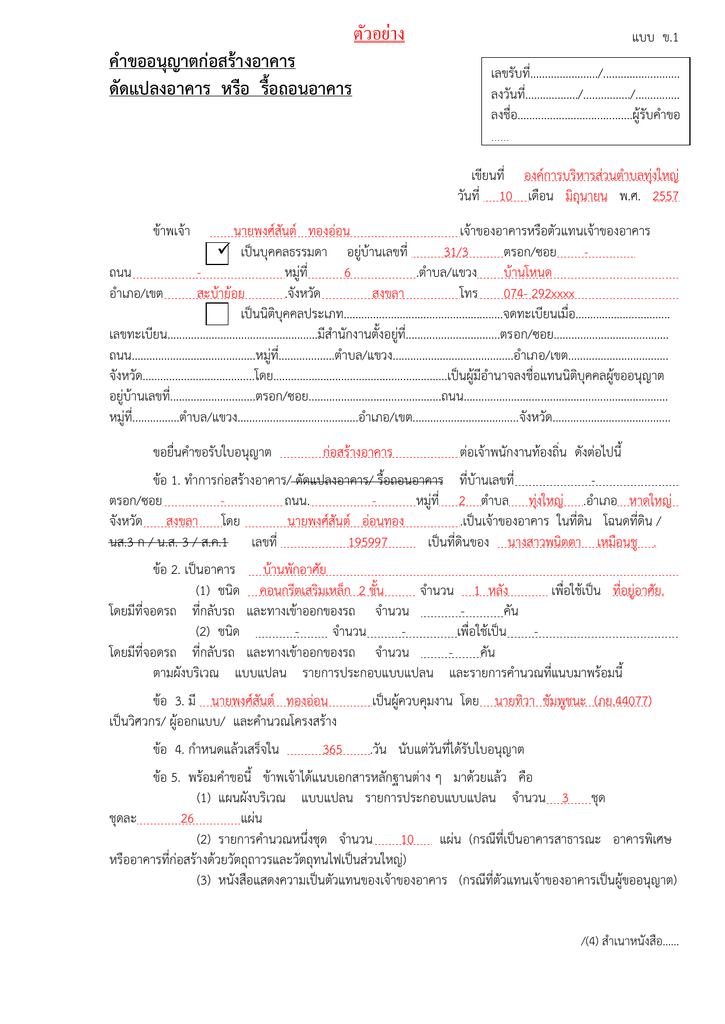 ตัวอย่าง
แบบ ข.1
คำขออนุญาตก่อสร้างอาคาร
ดัดแปลงอาคาร หรือ รื้อถอนอาคาร
เลขรับที่......................./.........................
ลงวันที่................../................/...............
ลงชื่อ.......................................ผู้รับคำขอ
......
เขียนที่ องค์การบริหารส่วนตำบลทุ่งใหญ่
วันที่ 10 เดือน มิถุนายน พ.ศ. 2557
ข้าพเจ้า นายพงศ์สันต์ ทองอ่อน เจ้าของอาคารหรือตัวแทนเจ้าของอาคาร
✓ เป็นบุคคลธรรมดา อยู่บ้านเลขที่ 31/3 ตรอก/ซอย -
ถนน - หมู่ที่ 6 .ตำบล/แขวง บ้านโหนด
อำเภอ/เขต สะบ้าย้อย .จังหวัด สงขลา โทร 074- 292xxxx
เป็นนิติบุคคลประเภท......................................................จดทะเบียนเมื่อ................................
เลขทะเบียน...................................................มีสำนักงานตั้งอยู่ที่................................ตรอก/ซอย.......................................
ถนน..........................................หมู่ที่...................ตำบล/แขวง.........................................อำเภอ/เขต..................................
จังหวัด......................................โดย...........................................................เป็นผู้มีอำนาจลงชื่อแทนนิติบุคคลผู้ขออนุญาต
อยู่บ้านเลขที่.............................ตรอก/ซอย.............................................ถนน.....................................................................
หมู่ที่................ตำบล/แขวง.........................................อำเภอ/เขต....................................จังหวัด........................................
ขอยื่นคำขอรับใบอนุญาต ก่อสร้างอาคาร ต่อเจ้าพนักงานท้องถิ่น ดังต่อไปนี้
ข้อ 1. ทำการก่อสร้างอาคาร/ ดัดแปลงอาคาร/ รื้อถอนอาคาร ที่บ้านเลขที่ -
ตรอก/ซอย - ถนน. - หมู่ที่ 2 ตำบล ทุ่งใหญ่ .อำเภอ หาดใหญ่
จังหวัด สงขลา โดย นายพงศ์สันต์ อ่อนทอง .เป็นเจ้าของอาคาร ในที่ดิน โฉนดที่ดิน /
นส.3 ก / น.ส. 3 / ส.ค.1 เลขที่ 195997 เป็นที่ดินของ นางสาวพนิตตา เหมือนชู .
ข้อ 2. เป็นอาคาร บ้านพักอาศัย
(1) ชนิด คอนกรีตเสริมเหล็ก 2 ชั้น จำนวน 1 หลัง เพื่อใช้เป็น ที่อยู่อาศัย.
โดยมีที่จอดรถ ที่กลับรถ และทางเข้าออกของรถ จำนวน - คัน
(2) ชนิด - จำนวน - เพื่อใช้เป็น -
โดยมีที่จอดรถ ที่กลับรถ และทางเข้าออกของรถ จำนวน - คัน
ตามผังบริเวณ แบบแปลน รายการประกอบแบบแปลน และรายการคำนวณที่แนบมาพร้อมนี้
ข้อ 3. มี นายพงศ์สันต์ ทองอ่อน เป็นผู้ควบคุมงาน โดย นายทิวา ชัมพูชนะ (ภย.44077)
เป็นวิศวกร/ ผู้ออกแบบ/ และคำนวณโครงสร้าง
ข้อ 4. กำหนดแล้วเสร็จใน 365 .วัน นับแต่วันที่ได้รับใบอนุญาต
ข้อ 5. พร้อมคำขอนี้ ข้าพเจ้าได้แนบเอกสารหลักฐานต่าง ๆ มาด้วยแล้ว คือ
(1) แผนผังบริเวณ แบบแปลน รายการประกอบแบบแปลน จำนวน 3 ชุด
ชุดละ 26 แผ่น
(2) รายการคำนวณหนึ่งชุด จำนวน 10 แผ่น (กรณีที่เป็นอาคารสาธารณะ อาคารพิเศษ
หรืออาคารที่ก่อสร้างด้วยวัตถุถาวรและวัตถุทนไฟเป็นส่วนใหญ่)
(3) หนังสือแสดงความเป็นตัวแทนของเจ้าของอาคาร (กรณีที่ตัวแทนเจ้าของอาคารเป็นผู้ขออนุญาต)
/(4) สำเนาหนังสือ......